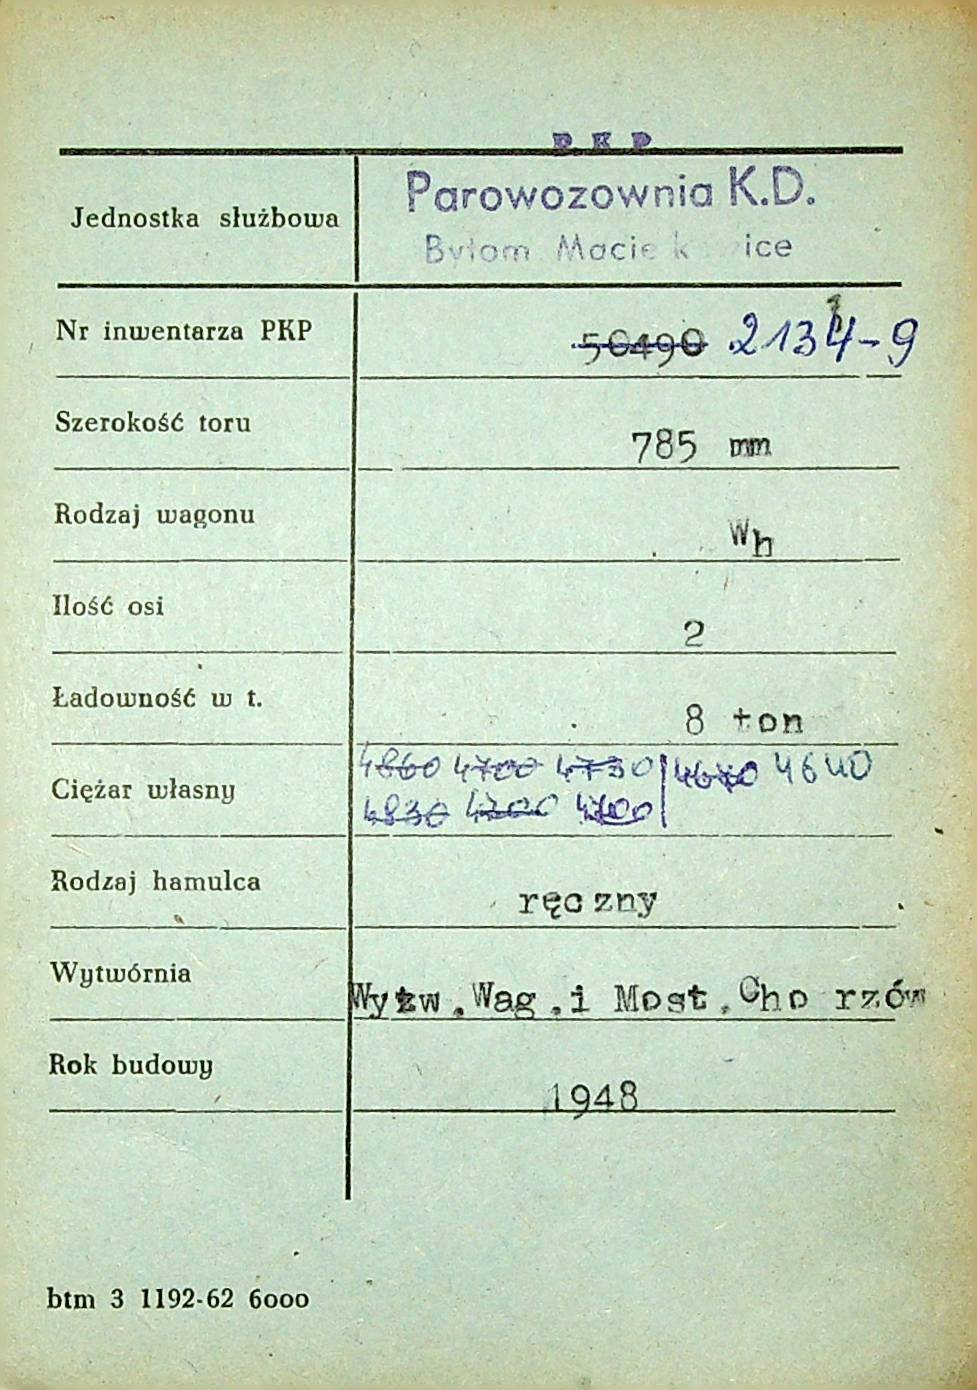 P K P
Jednostka służbowa Parowozownia K.D.
Bytom Macie k ice
Nr inwentarza PKP 50490 2134-9
Szerokość toru 785 mm
Rodzaj wagonu Wh
Ilość osi 2
Ładowność w t. 8 ton
4660 4700 4730 4670 4640
Ciężar własny
4830 4200 4700
Rodzaj hamulca ręczny
Wytwórnia Wytw. Wag. i Most. Chorzów
Rok budowy 1948
btm 3 1192-62 6000